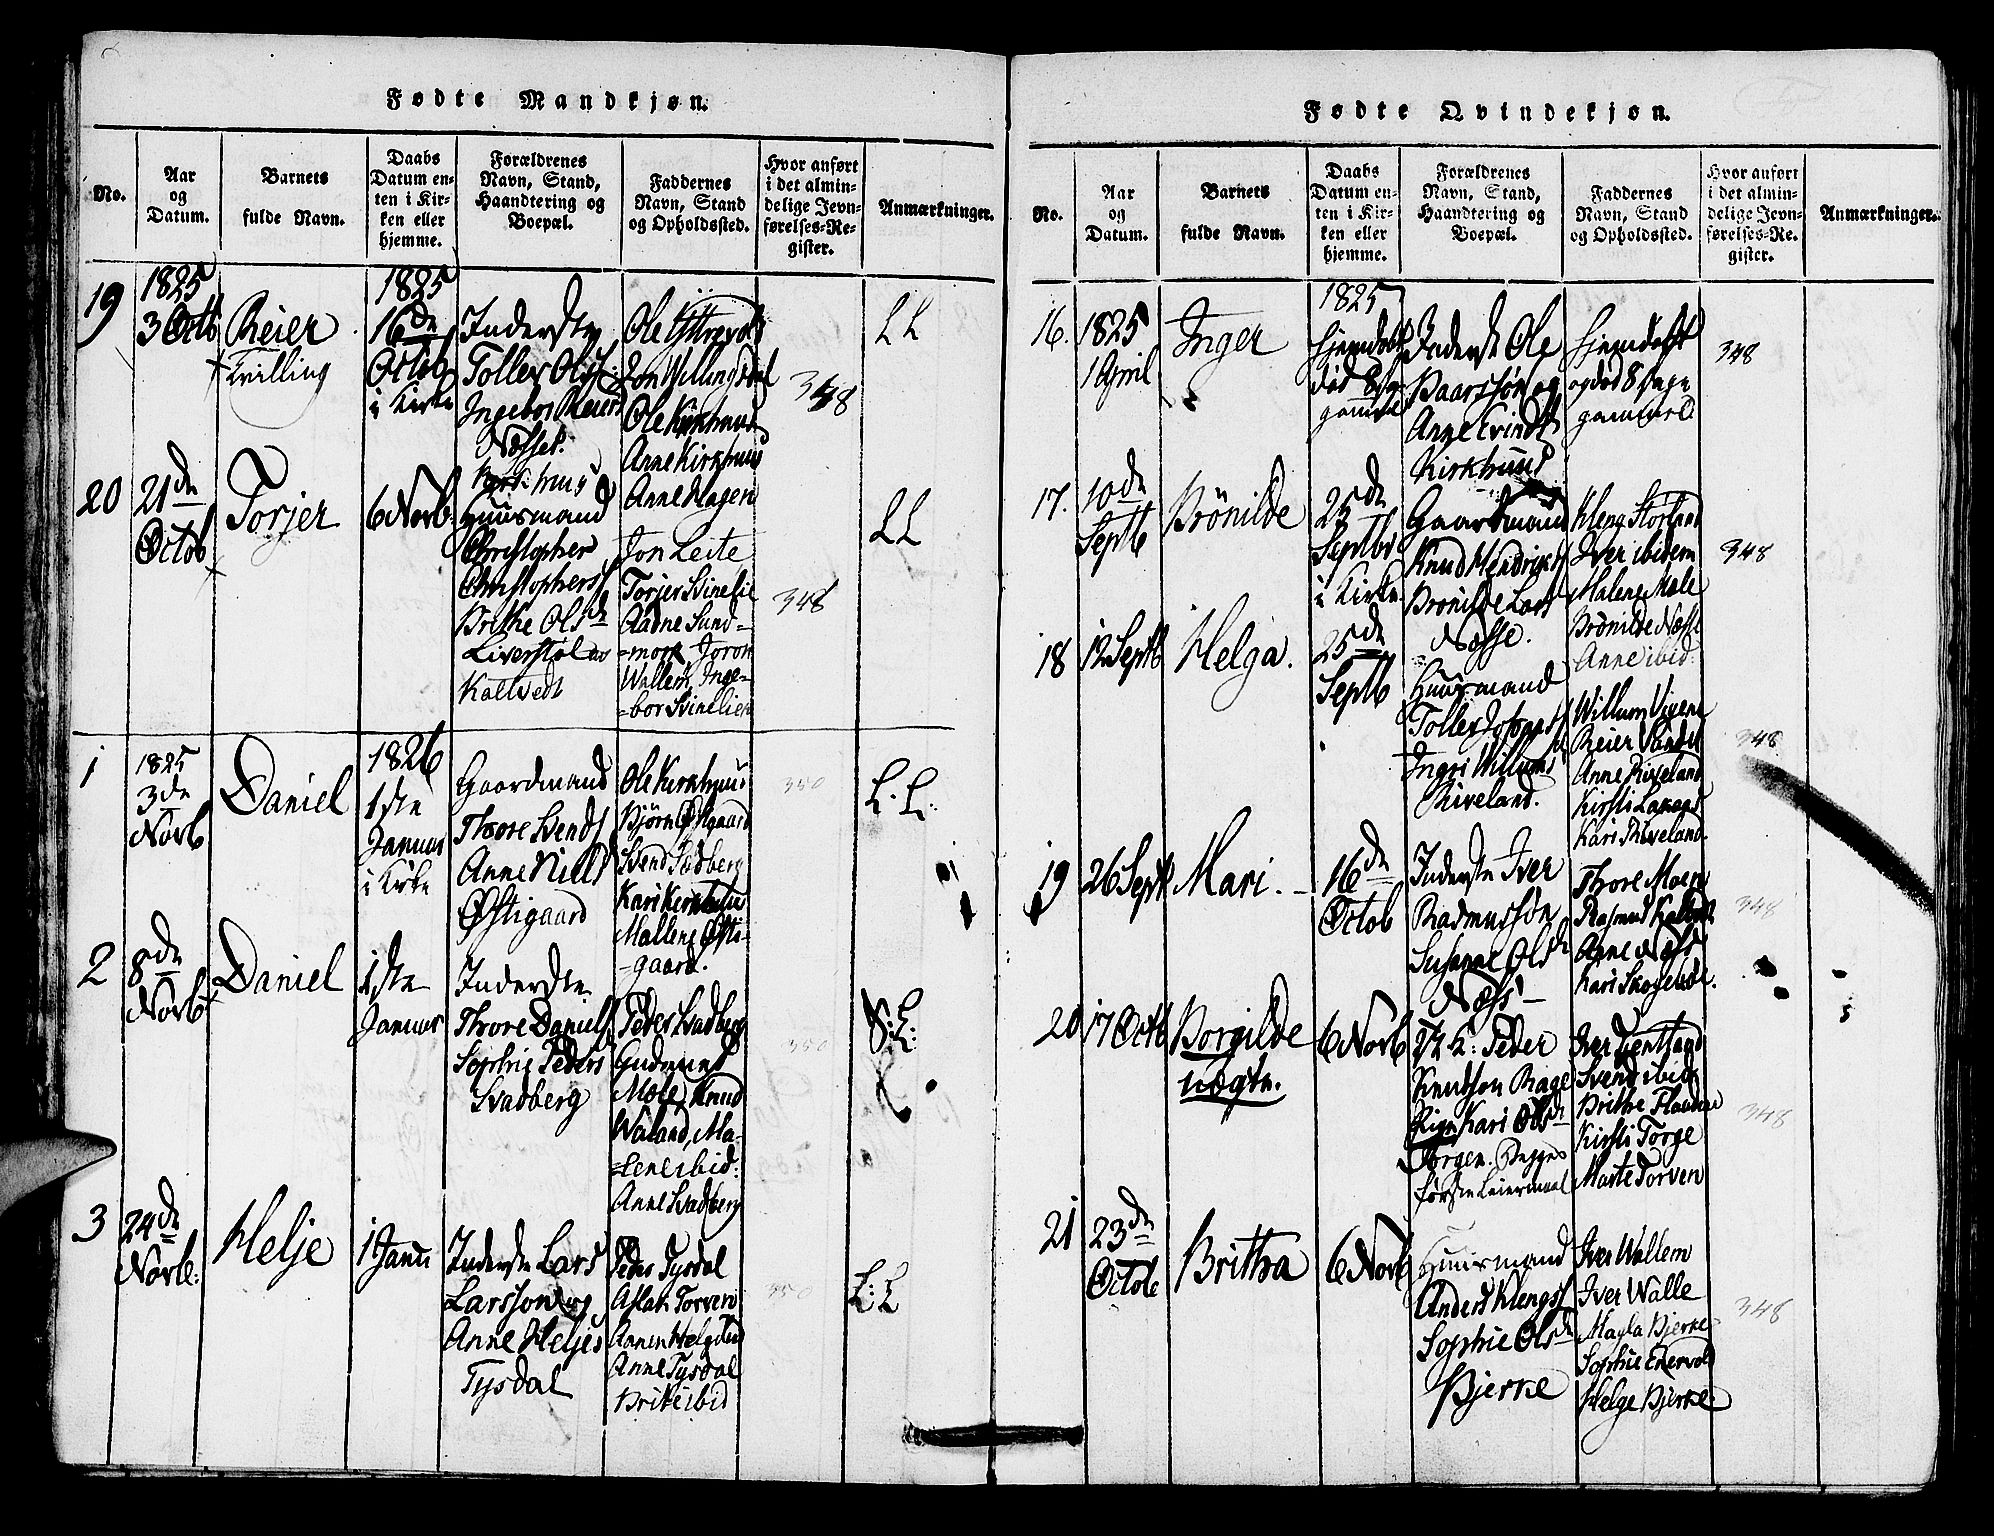 Fødte Mandkjøn.
No.
Aar
og
Datum.
Barnets
fulde Navn.
Daabs
Datum en-
ten i Kir-
ken eller
hjemme.
Forældrenes
Navn, Stand,
Haandtering og
Boepæl.
Faddernes
Navn, Stand
og Opholdssted.
Hvor anført
i det almin-
delige Jevn-
førelses-Re-
gister.
Anmærkninger.
19
1825
3 Octb
Reier
Tvilling
1825
16de
Octob
i Kirke
Inderste
Toller Ols
Ingebor Reiers
Næsset.
Ole
Jon Willingsdal
Ole Kirkhuus
Anne Kirkhuus
Anne Hagen
348
LL
20
21de
Octob
Torjer
6 Novb.
Huusmand
Christopher
Christophers
Brithe Olsd
Kaltvedt
Jon Leite
Torjer Svinelie
Aadne Sund=
=mork Joron
Wallem, Inge=
=bor Svinelien
348
LL
1
1825
3de
Novb
Daniel
1826
1ste
Januar
i Kirke
Gaardmand
Thore Svends
Anne Niels
Østigaard
Ole Kirkhuus
Bjørn Østigaard
Svend Svadberg
Kari
Mallene Østi-
-gaard.
350
L. L.
2
8de
Novb
Daniel
1ste
Januar
Inderste
Thore Daniels
Sophie Peders
Svadberg
Peder Svadberg
Gudmund
Mæle, Knud
Waland, Ma-
=lene ibid:
Anne Svadberg
350
S: L:
3
24de
Novb:
Helje
1 Janu
Inderste Lars
Larsson og
Anne Heljes
Tysdal
Peder Tysdal
Aslak Torven
Anne Tysdal
Brite ibid
350
L: L
Fødte Qvindekjøn.
No.
Aar
og
Datum.
Barnets
fulde Navn.
Daabs
Datum en-
ten i Kir-
ken eller
hjemme.
Forældrenes
Navn, Stand,
Haandtering og
Boepæl.
Faddernes
Navn, Stand
og Opholdssted.
Hvor anført
i det almin-
delige Jevn-
førelses-Re-
gister.
Anmærkninger.
16.
1825
1 April
Inger
1825
Hjemdøbt
død 8 Da
gammel
Inderst Ole
Baarssøn og
Anne Evindt
Kirkhuus
Hjemdøbt
og død 8 Dage
gammel
348
17.
10de
Septb
Brönilde
25de
Septbr
i Kirke
Gaardmand
Knud Hendriks
Brönilde Lars
Næsse.
Kleng Störland
Iver ibidem
Malene Mæle
Brönilde Næsse
Anne ibid:
348
18
12 Septb
Helga.
25de
Septb
Huusmand
Toller Johans
Ingri Willums
Riveland.
Willum Vigene
Reier
Anne Riveland
Kirsti
Kari Riveland.
348
19
26 Septb
Mari.
16de
Octob
Inderste Iver
Rasmussøn
Susanne Olsd
Næss
Thore Moen
Rasmus
Anne Næss
Kari
348
20
17 Octb
Borgilde
uægte.
6 Novb
U. K: Peder
Knutson Rage
Pige Kari Olsd
Tørgen. Begges
første Leiermaal
Iver
Svend ibid
Brithe
Kirsti Torge
Marte Torven
348
21
23de
Octob
Britha
6 Novb
Huusmand
Anders Klengs
Sophie Olsd
Bjerke
Iver Wallem
Iver Walle
Magla Bjerke
Sophie Enervold
Helge Bjerke
348